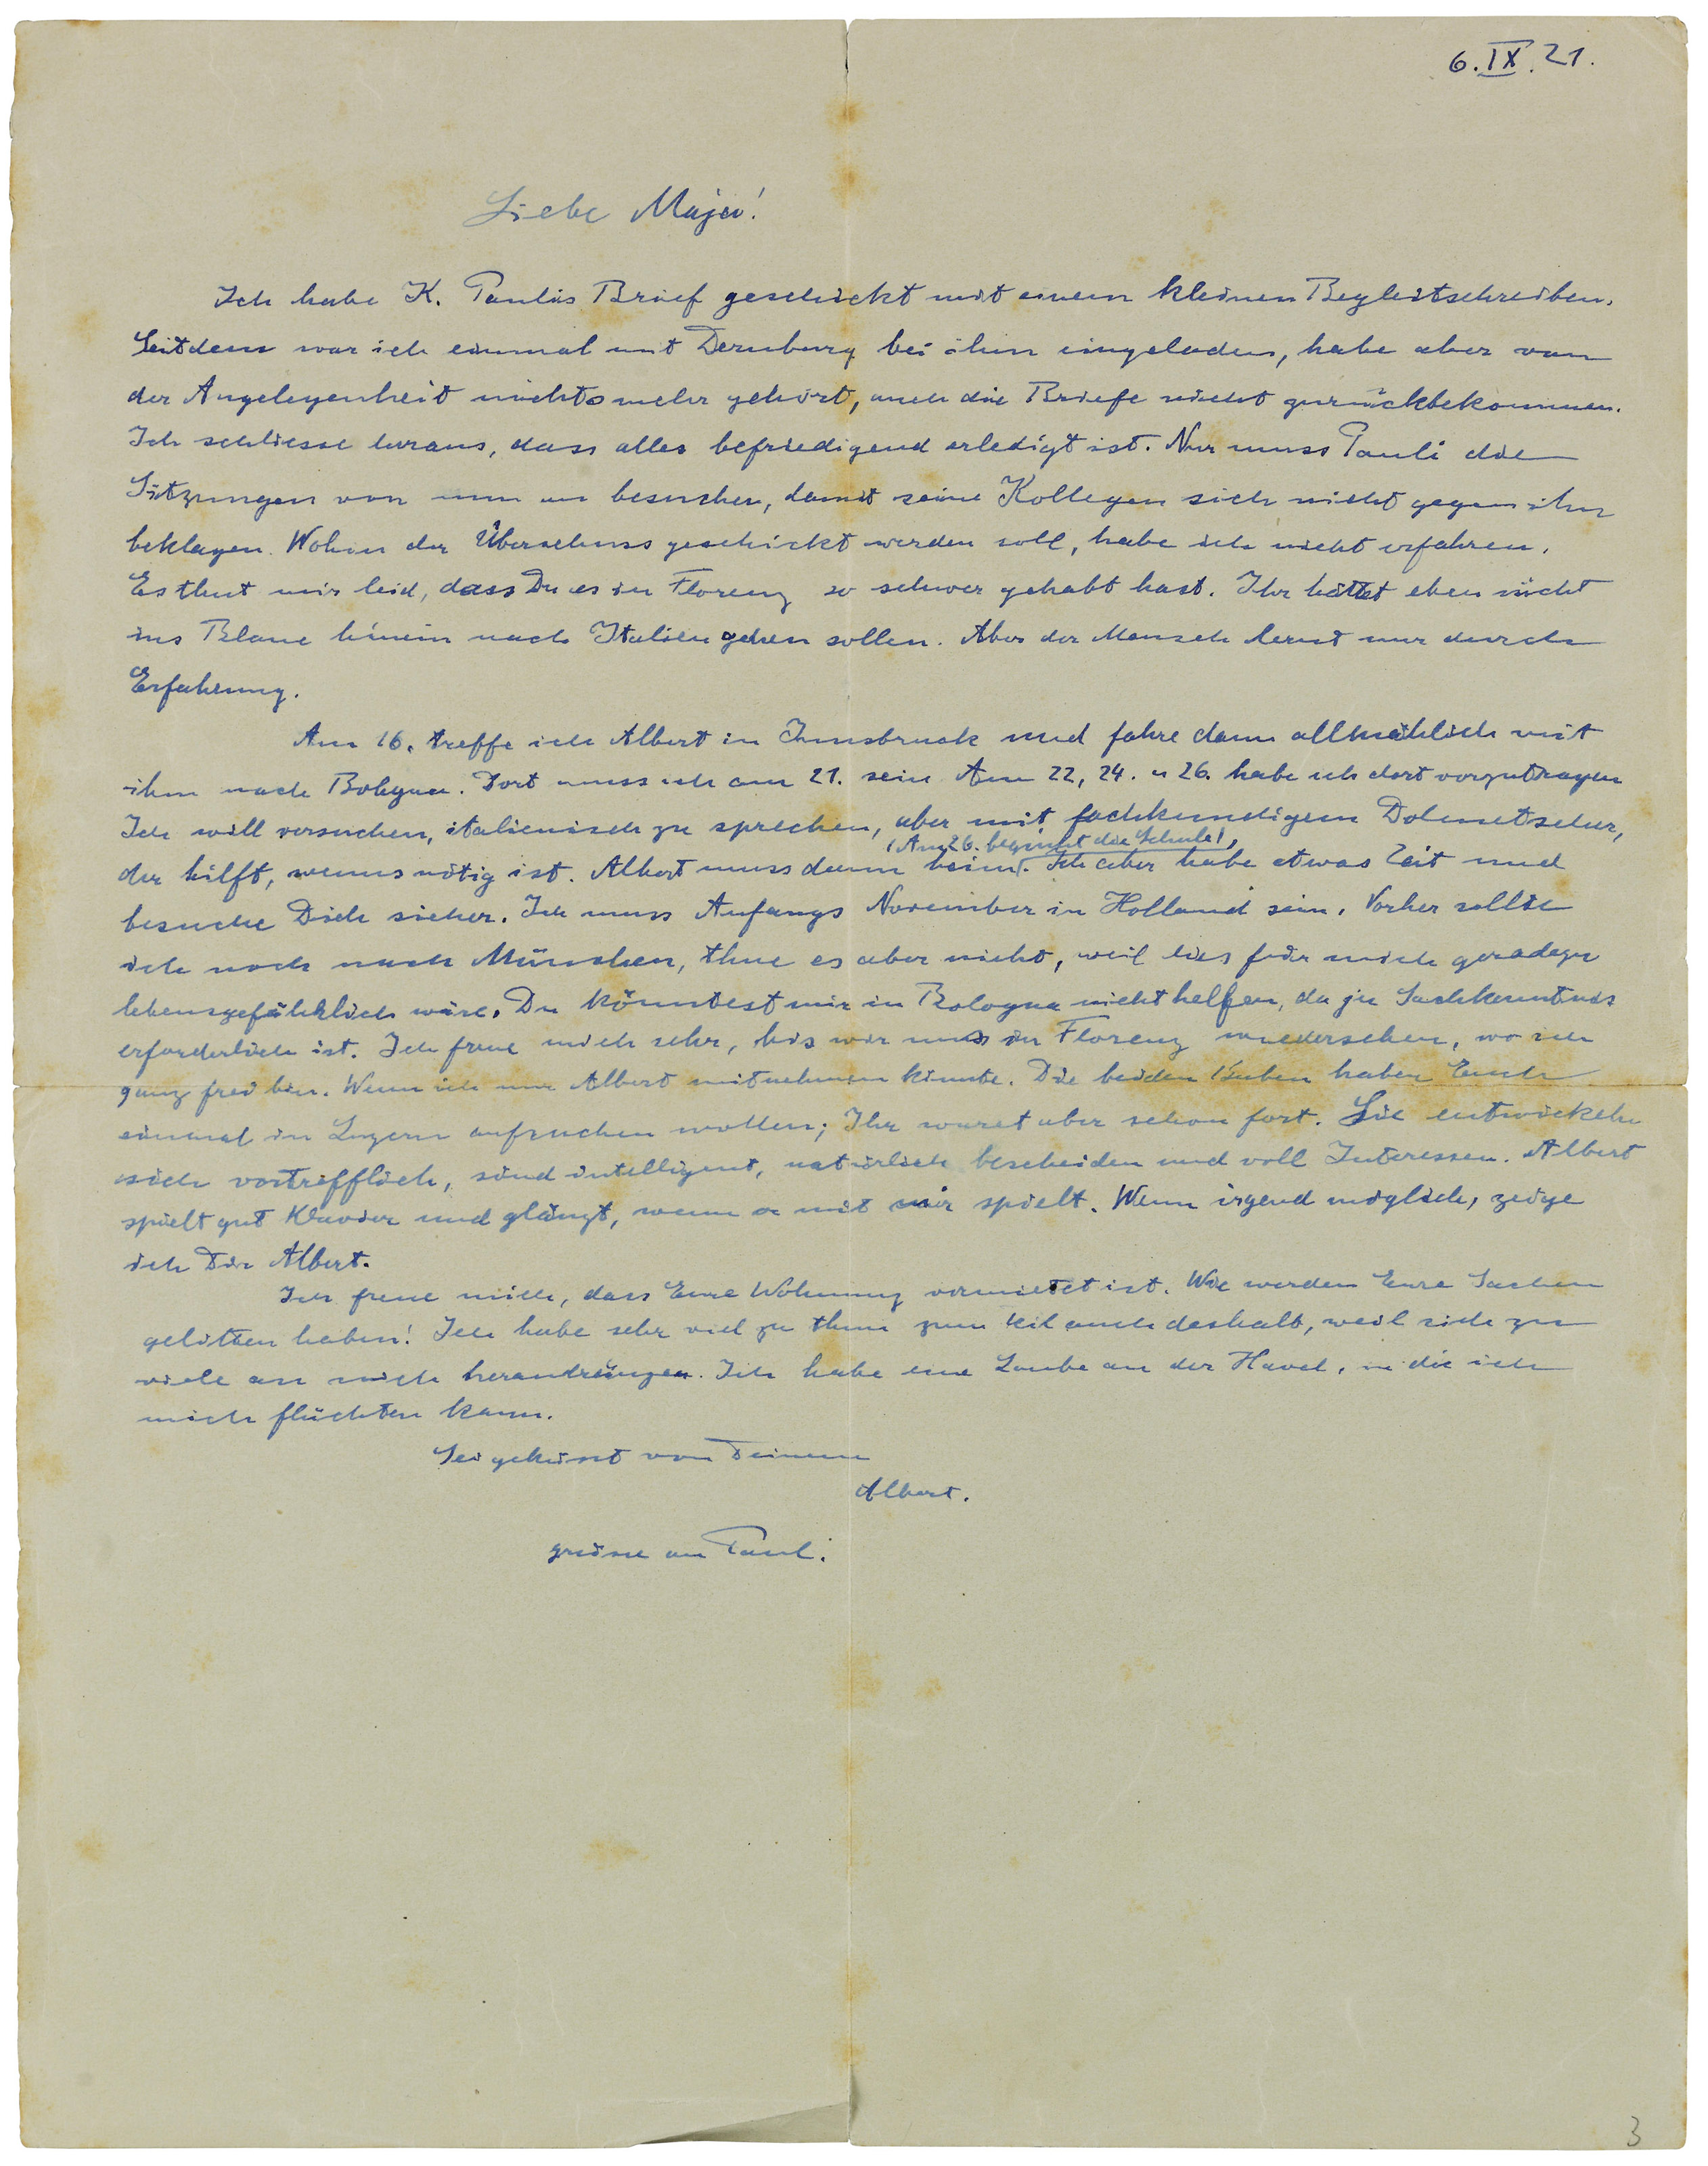 6. IX. 21.
Liebe Maja!
Ich habe K. Paulis Brief geschickt mit einem kleinen Begleitschreiben.
Seitdem war ich einmal mit Dernburg bei ihm eingeladen, habe aber von
der Angelegenheit nichts mehr gehört, auch die Briefe nicht zurückbekommen.
Ich schliesse daraus, dass alles befriedigend erledigt ist. Nur muss Pauli die
Sitzungen von nun an besuchen, damit seine Kollegen sich nicht gegen ihn
beklagen. Wohin der Überschuss geschickt werden soll, habe ich nicht erfahren.
Es thut mir leid, dass Du es in Florenz so schwer gehabt hast. Ihr hättet eben nicht
ins Blaue hinein nach Italien gehen sollen. Aber der Mensch lernt nur durch
Erfahrung.
Am 16. treffe ich Albert in Innsbruck und fahre dann allmählich mit
ihm nach Bologna. Dort muss ich am 21. sein. Am 22, 24. u 26. habe ich dort vorzutragen
Ich will versuchen, italienisch zu sprechen, aber mit fachkundigem Dolmetscher,
(Am 26. beginnt die Schule),
der hilft, wenns nötig ist. Albert muss dann heim. Ich aber habe etwas Zeit und
besuche Dich sicher. Ich muss Anfangs November in Holland sein. Vorher sollte
ich noch nach München, thue es aber nicht, weil dies für mich geradezu
lebensgefährlich wäre. Du könntest mir in Bologna nicht helfen, da ja Sachkenntnis
erforderlich ist. Ich freue mich sehr, bis wir uns in Florenz wiedersehen, wo ich
ganz frei bin. Wenn ich nur Albert mitnehmen könnte. Die beiden Buben haben Euch
einmal in Luzern aufsuchen wollen; Ihr waret aber schon fort. Sie entwickeln
sich vortrefflich, sind intelligent, natürlich bescheiden und voll Interessen. Albert
spielt gut Klavier und glänzt, wenn er mit mir spielt. Wenn irgend möglich, zeige
ich Dir Albert.
Ich freue mich, dass Eure Wohnung vermietet ist. Wie werden Eure Sachen
gelitten haben! Ich habe sehr viel zu thun zum teil auch deshalb, weil sich zu
viele an mich herandrängen. Ich habe eine Laube an der Havel, in die ich
mich flüchten kann.
Sei geküsst von Deinem
Albert.
grüsse an Paul.
3